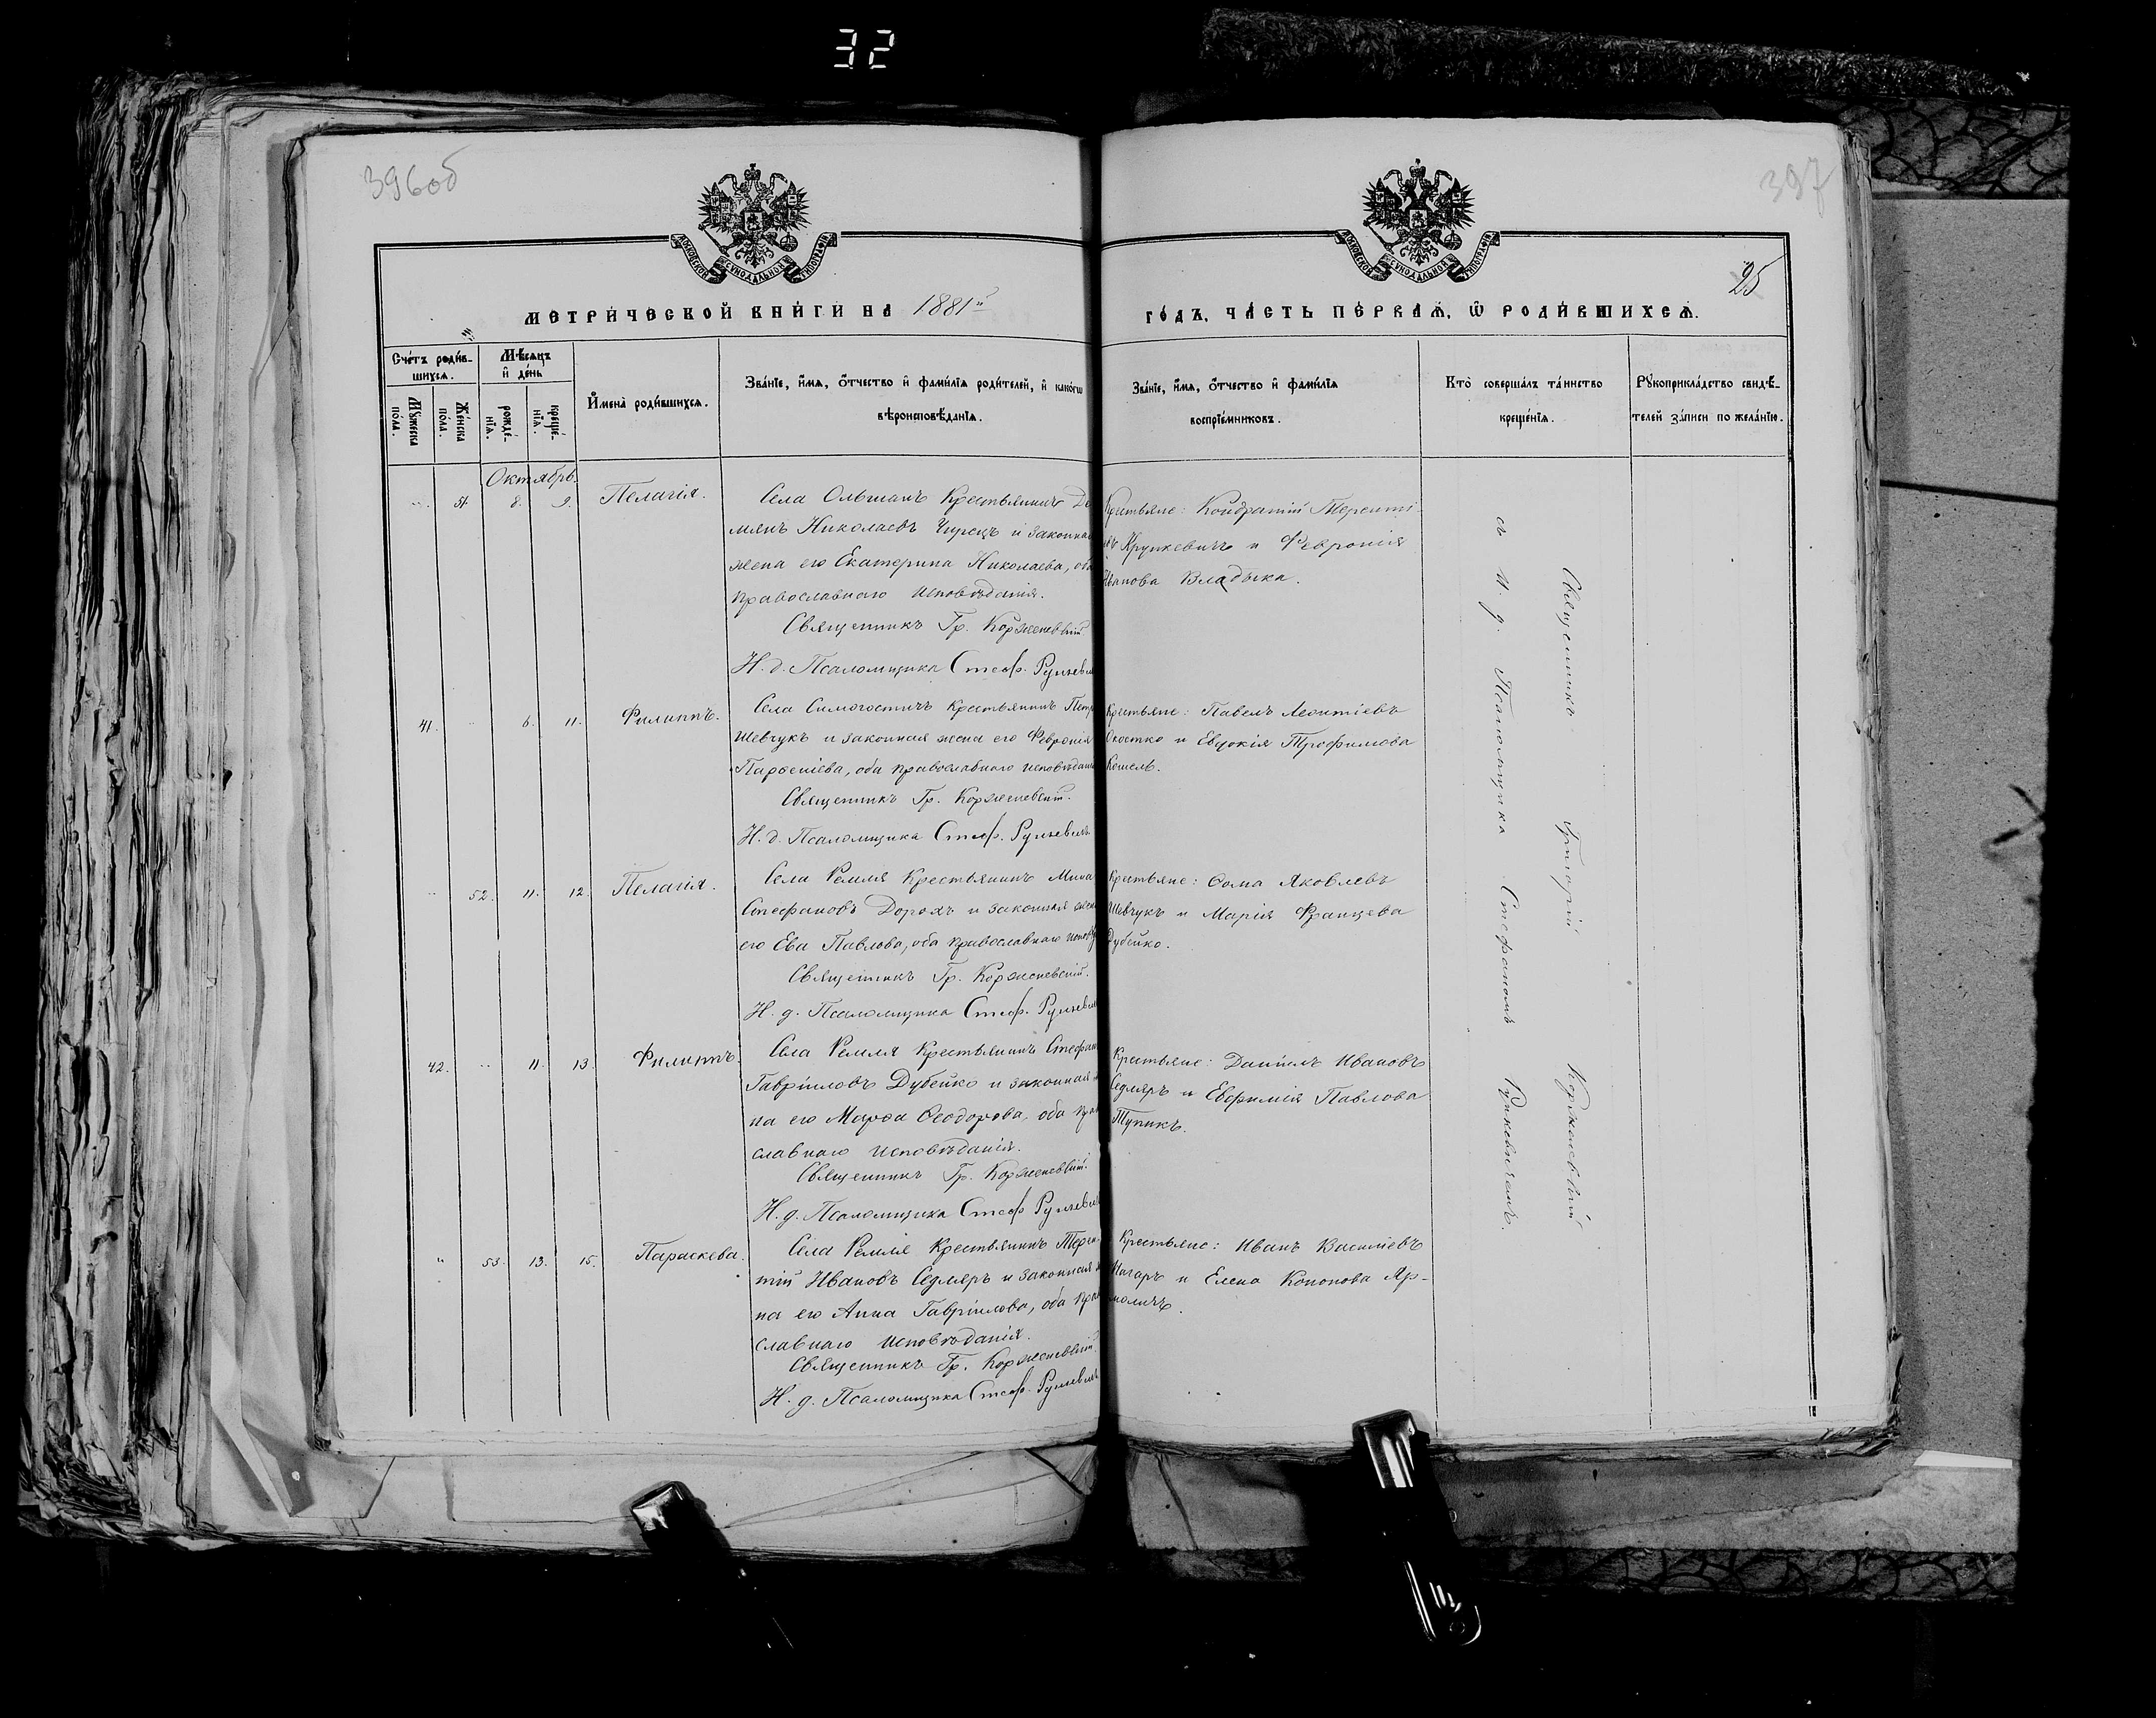 32
396об
397
25
МОСКОВСКОЙ СѴНОДАЛЬНОЙ ТИПОГРАФІИ
МОСКОВСКОЙ СѴНОДАЛЬНОЙ ТИПОГРАФІИ
МЕТРИ́ЧЕСКОЙ КНИ́ГИ НА 1881й
ГО́ДЪ, ЧА́СТЬ ПЕ́РВАѦ, Ѡ҆ РОДИ́ВШИХСѦ.
Сче́тъ роди́в-
шихсѧ.
Мѣ́сѧцъ
и҆ де́нь
Мꙋ́жеска
по́ла.
Же́нска
пола.
рожде́-
нїѧ.
креще́-
нїѧ.
И҆мена̀ роди́вшихсѧ.
Зва́нїе, и҆́мѧ, ѻ҆́тчество и҆ фами́лїѧ роди́телей, и҆ како́гѡ
вѣроисповѣ́данїѧ.
Зва́нїе, и҆́мѧ, ѻ҆́тчество и҆ фами́лїѧ
воспрїе́мниковъ.
Кто̀ соверша́лъ та́инство
креще́нїѧ.
Рꙋкоприкла́дство свидѣ́-
телей за́писи по жела́нїю.
Октябрь.
51. 8. 9. Пелагія.
Села Ольшанъ Крестьянинъ Де
мянъ Николаевъ Чурецъ и законная
жена его Екатерина Николаева, оба
православнаго исповѣданія.
Священникъ Гр. Корженевскій
И. д. Псаломщика Стеф. Рункевичъ
Крестьяне: Кондратій Теренті-
евъ Крупкевичъ и Февронія
Иванова Владыка.
41. 6. 11. Филиппъ.
Села Симогостичъ Крестьянинъ Петръ
Шевчукъ и законная жена его Февронія
Парѳеніева, оба православнаго исповѣданія
Священникъ Гр. Корженевскій.
И. д. Псаломщика Стеф. Рункевичъ
Крестьяне: Павелъ Леонтіевъ
и Евдокія Трофимова
Кошель.
52. 11. 12. Пелагія.
Села Ремля Крестьянинъ Мина
Стефановъ Дорохъ и законная жена
его Ева Павлова, оба православнаго исповѣд
Священникъ Гр. Корженевскій.
И. д. Псаломщика Стеф. Рункевичъ
Крестьяне: Ѳома Яковлевъ
Шевчукъ и Марія Францева
Дубейко.
42. 11. 13. Филиппъ.
Села Ремля Крестьянинъ Стефанъ
Гавріиловъ Дубейко и законная же
на его Марѳа Ѳеодорова, оба право
славнаго исповѣданія.
Священникъ Гр. Корженевскій.
И. д. Псаломщика Стеф. Рункевичъ
Крестьяне: Даніилъ Ивановъ
Седляръ и Евфимія Павлова
Тупикъ.
53. 13. 15. Параскева.
Села Ремля Крестьянинъ Терен-
тій Ивановъ Седляръ и законная же
на его Анна Гавріилова, оба право
славнаго исповѣданія.
Священникъ Гр. Корженевскій.
И. д. Псаломщика Стеф. Рункевичъ
Крестьяне: Иванъ Василіевъ
и Елена Кононова Яр-
моличъ.
Священникъ Григорій Корженевскій
съ И. д. Псаломщика Стефаномъ Рункевичемъ.